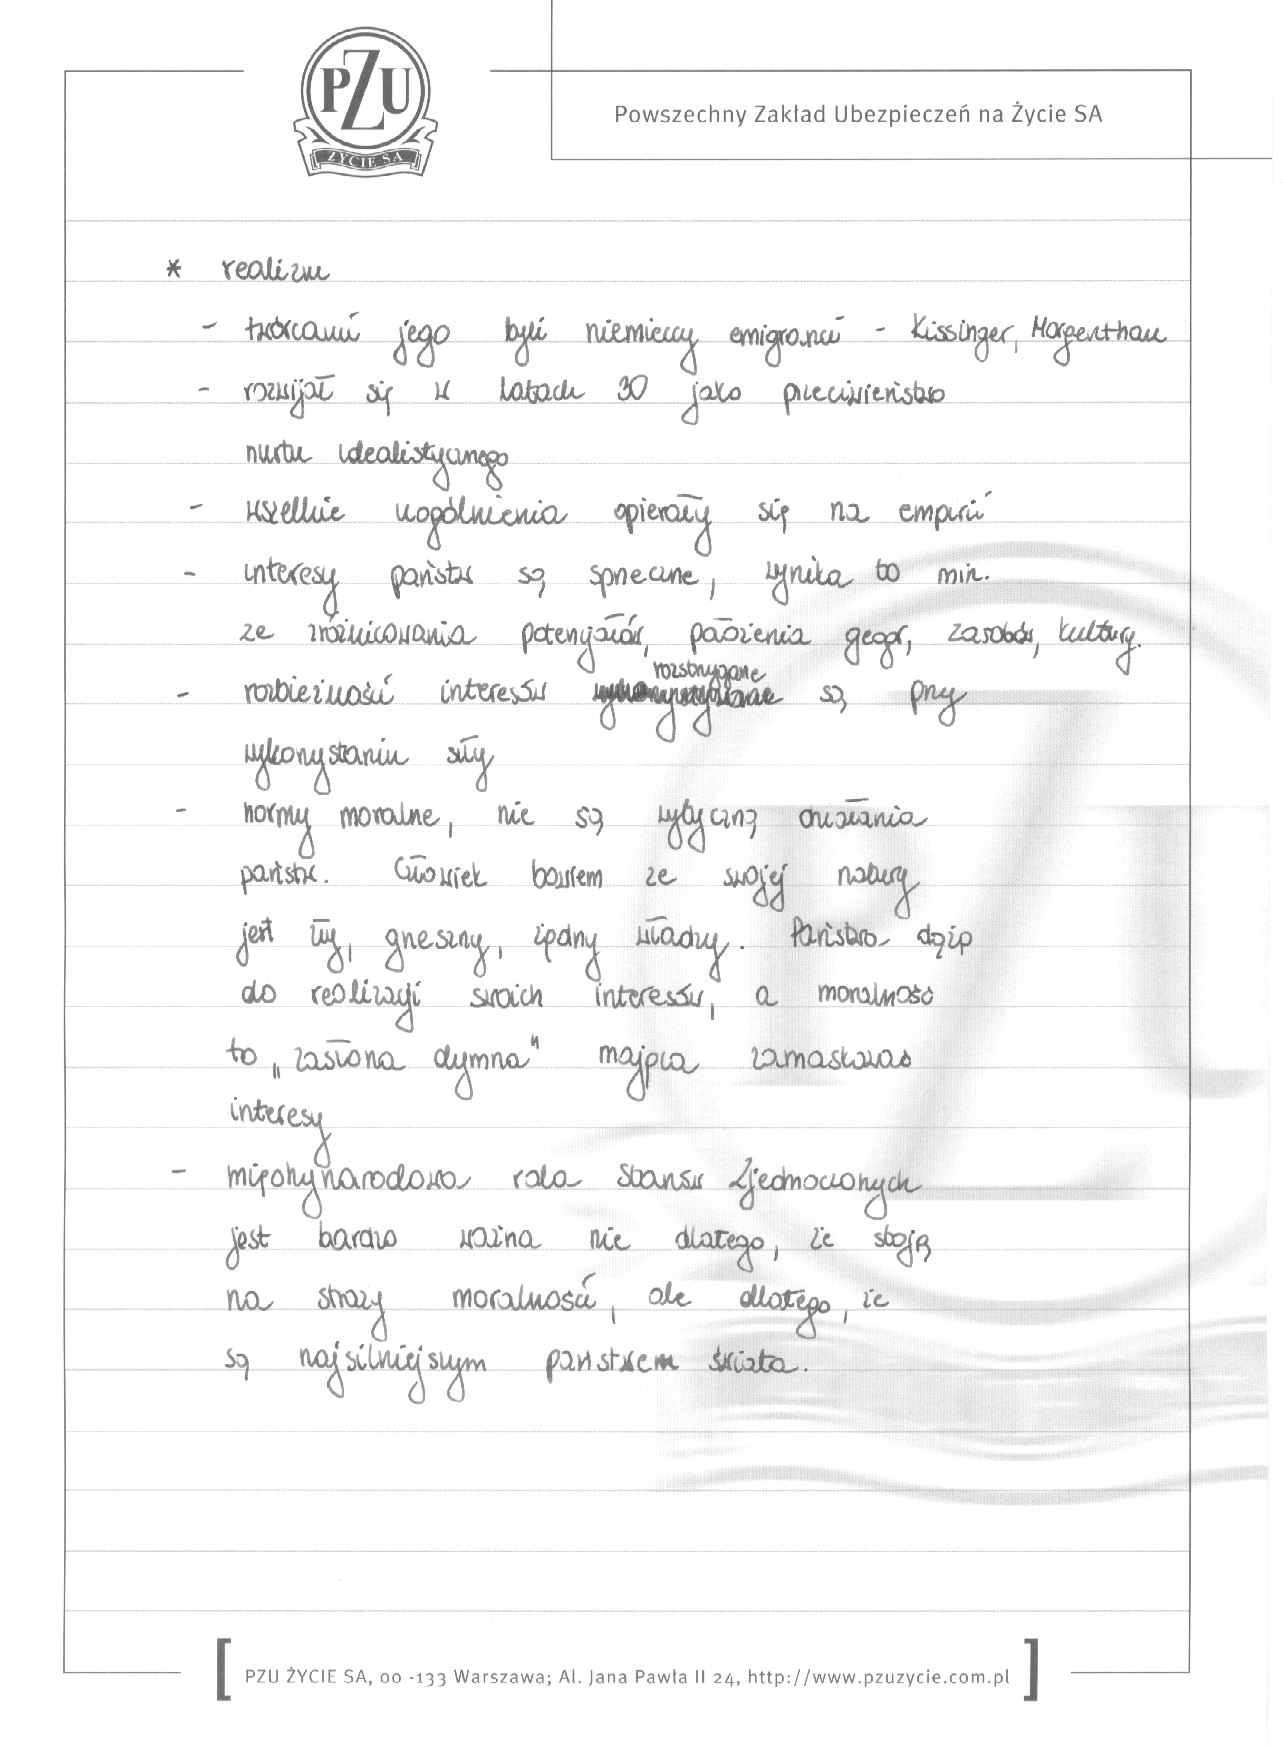 PZU
ŻYCIE SA
Powszechny Zakład Ubezpieczeń na Życie SA
* realizm
- twórcami jego byli niemieccy emigranci - Kissinger, Morgenthau
- rozwijał się w latach 30 jako przeciwieństwo
nurtu idealistycznego
- wszelkie uogólnienia opierały się na empirii
- interesy państw są sprzeczne, wynika to min.
ze zróżnicowania potencjałów, położenia geogr, zasobów, kultury.
rozstrzygane
- rozbieżności interesów są przy
wykorzystaniu siły
- normy moralne, nie są wytyczną działania
państw. Człowiek bowiem ze swojej natury
jest zły, grzeszny, żądny władzy. Państwo dąży
do realizacji swoich interesów, a moralność
to „zasłona dymna" mająca zamaskować
interesy
- międzynarodowa rola Stanów Zjednoczonych
jest bardzo ważna nie dlatego, że stoją
na straży moralności, ale dlatego, że
są najsilniejszym państwem świata.
[ PZU ŻYCIE SA, 00 -133 Warszawa; Al. Jana Pawła II 24, http://www.pzuzycie.com.pl ]